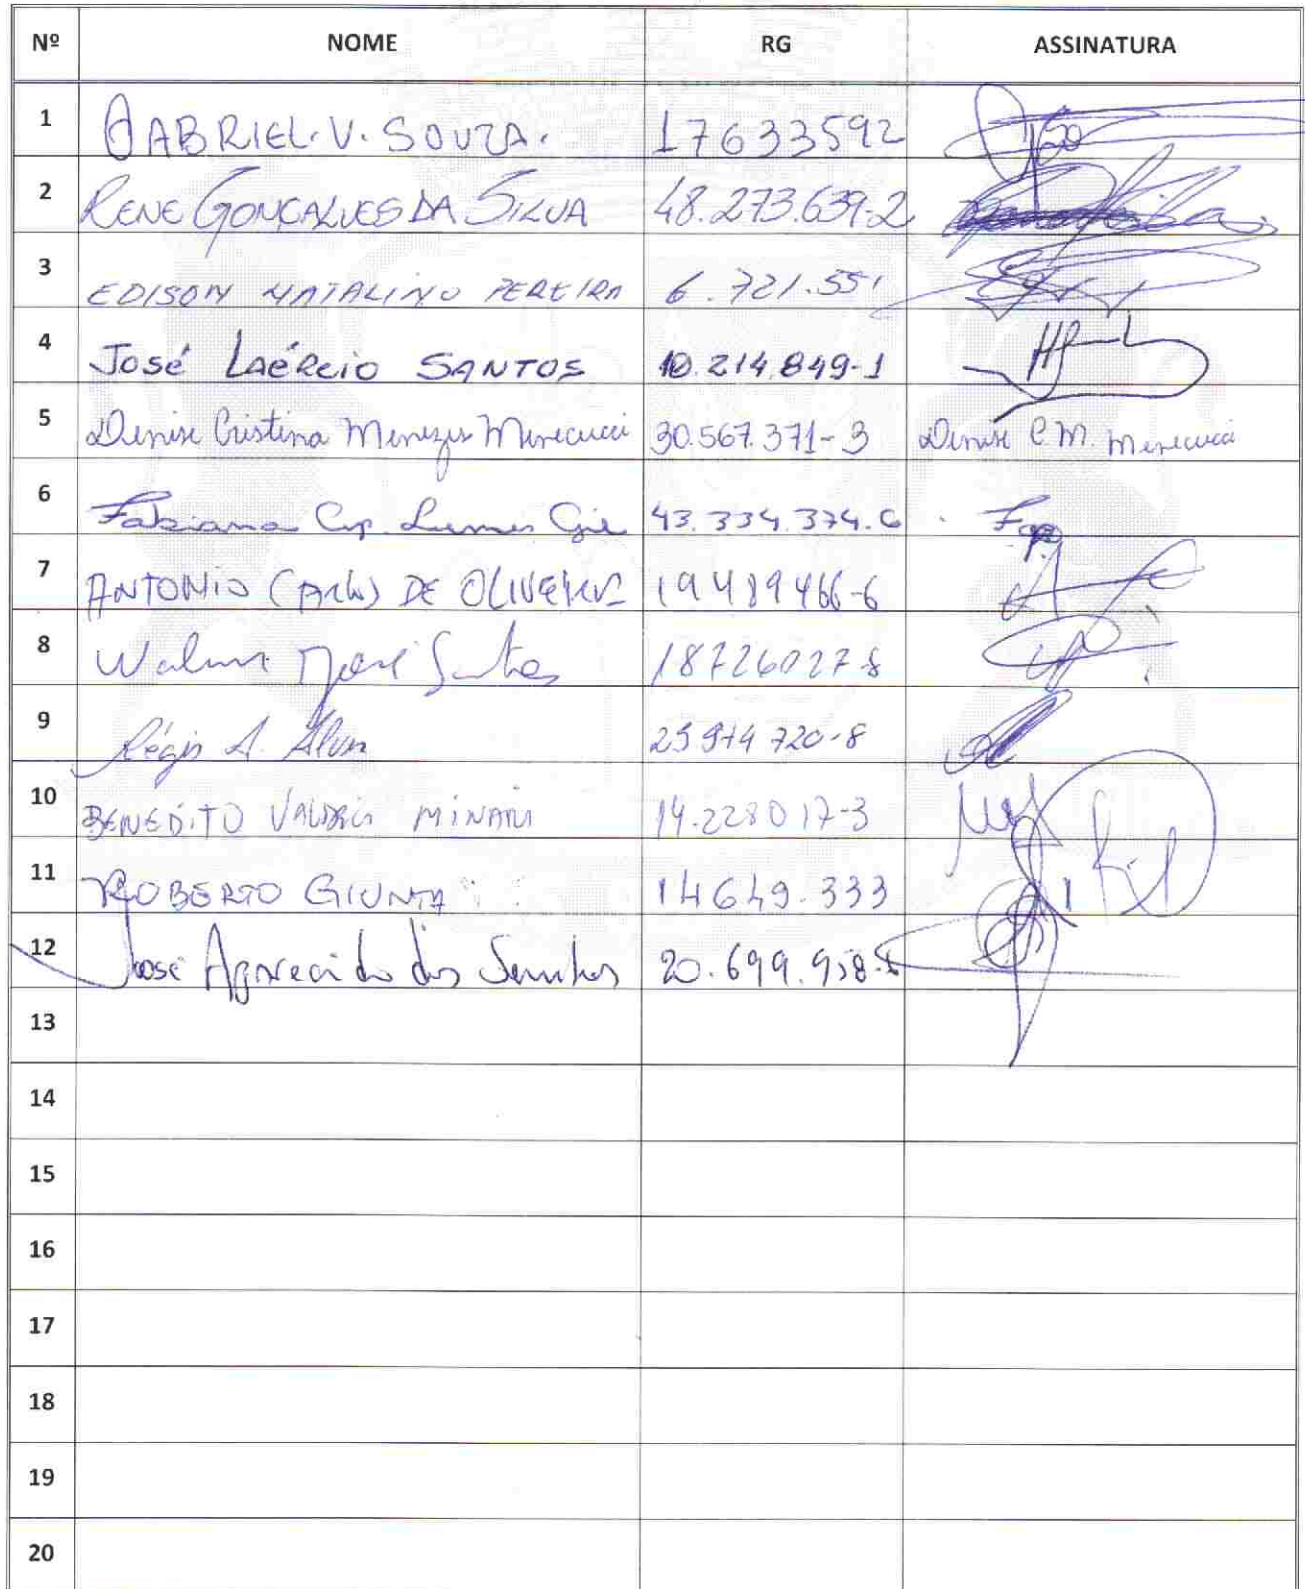 Nº NOME RG ASSINATURA
1 GABRIEL. V. SOUZA. 17633592
2 RENE GONÇALVES DA SILVA 48.273.639-2
3 EDISON NATALINO PEREIRA 6.721.551
4 José LAÉRCIO SANTOS 10.214.849-1
5 Denise Cristina Menezes Menecucci 30.567.371-3 Denise C. M. Menecucci
6 Fabiana Ap. Lemes Gil 43.334.374.6
7 ANTONIO CARLOS DE OLIVEIRA 19489466-6
8 José Santos 18726027-8
9 Régis A. Alves
10 BENEDITO MINARI 14.228017-3
11 ROBERTO GIUNTA 14649.333
12 José Aparecido dos Santos 20.699.958-
13
14
15
16
17
18
19
20